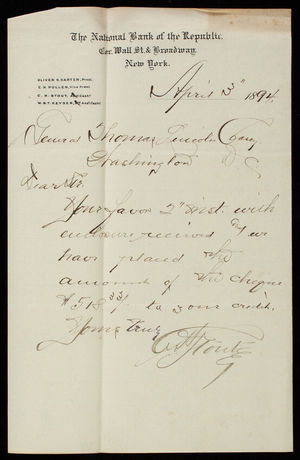 The National Bank of the Republic.
Cor. Wall St. & Broadway.
New York.
OLIVER S. CARTER, Prest.
E. H. PULLEN, Vice Prest.
C. H. STOUT, Cashier
W. B. T. KEYSER, Asst Cashier
April 3" 1894.
General Thomas Lincoln Casey
Washington D C
Dear Sir.
Your favor 2" inst. with
enclosure received & we
have placed the
amount of the cheque
$518 33/ to your credit.
Yours Truly
C H Stout